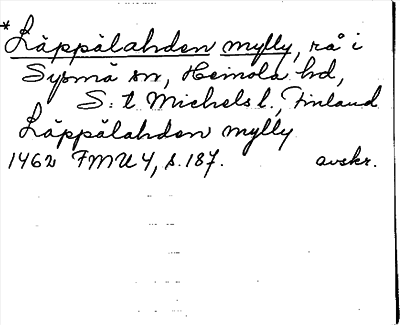 *Läppälahden mylly, rå i
Sysmä sn, Heinola hd,
S:t Michels l., Finland
Läppälahden mylly
1462 FMU 4, s. 187. avskr.